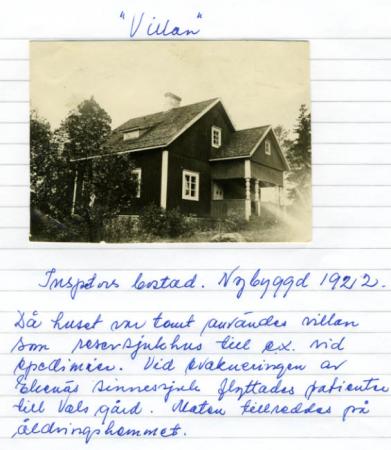 "Villan"
Inspktors bostad. Nybyggd 1922.
Då huset var tomt användes villan
som reservsjukhus till ex. vid
epedimier. Vid evakueringen av
Ekenäs sinnessjuk flyttades patienter
till Vals gård. Maten tillreddes på
åldringshemmet.